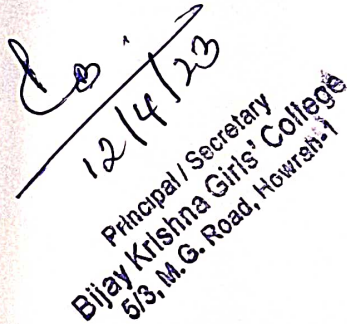 12/4/23
Principal / Secretary
Bijay Krishna Girls' College
5/3, M.G. Road, Howrah-1